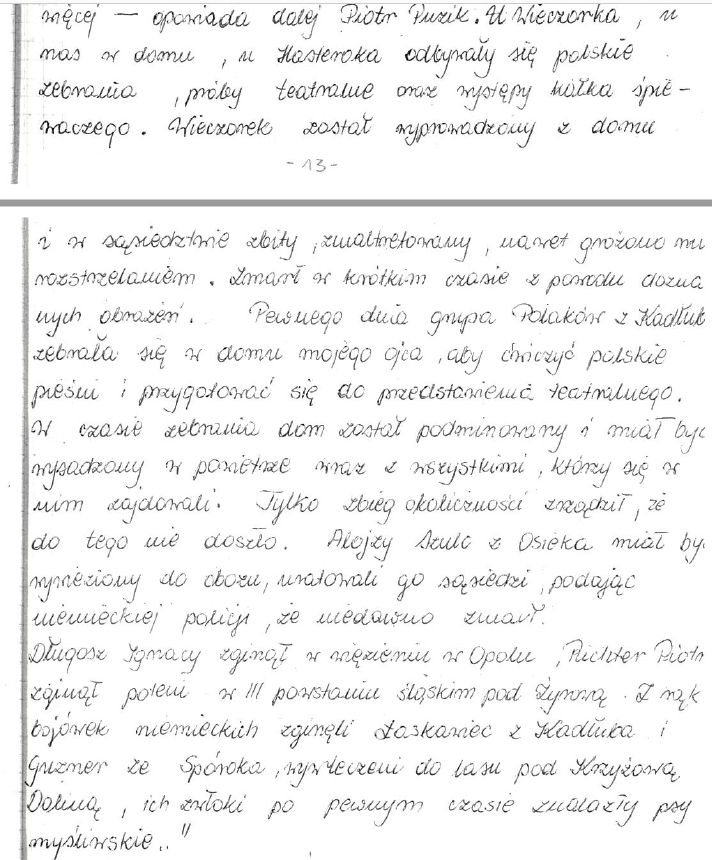 więcej — opowiada dalej Piotr Puzik. U Wieczorka, u
nas w domu, u Kasteroka odbywały się polskie
zebrania, próby teatralne oraz występy kółka śpie-
waczego. Wieczorek został wyprowadzony z domu
- 13 -
i w sąsiedztwie zbity, zmaltretowany, nawet grożono mu
rozstrzelaniem. Zmarł w krótkim czasie z powodu dozna
nych obrażeń. Pewnego dnia grupa Polaków z Kadłub
zebrała się w domu mojego ojca, aby ćwiczyć polskie
pieśni i przygotować się do przedstawienia teatralnego.
W czasie zebrania dom został podminowany i miał być
wysadzony w powietrze wraz z wszystkimi, którzy się w
nim zajdowali. Tylko zbieg okoliczności zrządził, że
do tego nie doszło. Alojzy Szulc z Osieka miał by
wywieziony do obozu, uratowali go sąsiedzi, podając
niemieckiej policji, że niedawno zmarł.
Długosz Ignacy zginął w więzieniu w Opolu, Richter Piotr
zginął potem w III powstaniu śląskim pod Żyrową. Z rąk
bojówek niemieckich zginęli Łaskawiec z Kadłuba i
Guzner ze Spóroka, wywleczeni do lasu pod Krzyżową
Doliną, ich zwłoki po pewnym czasie znalazły psy
myśliwskie.."